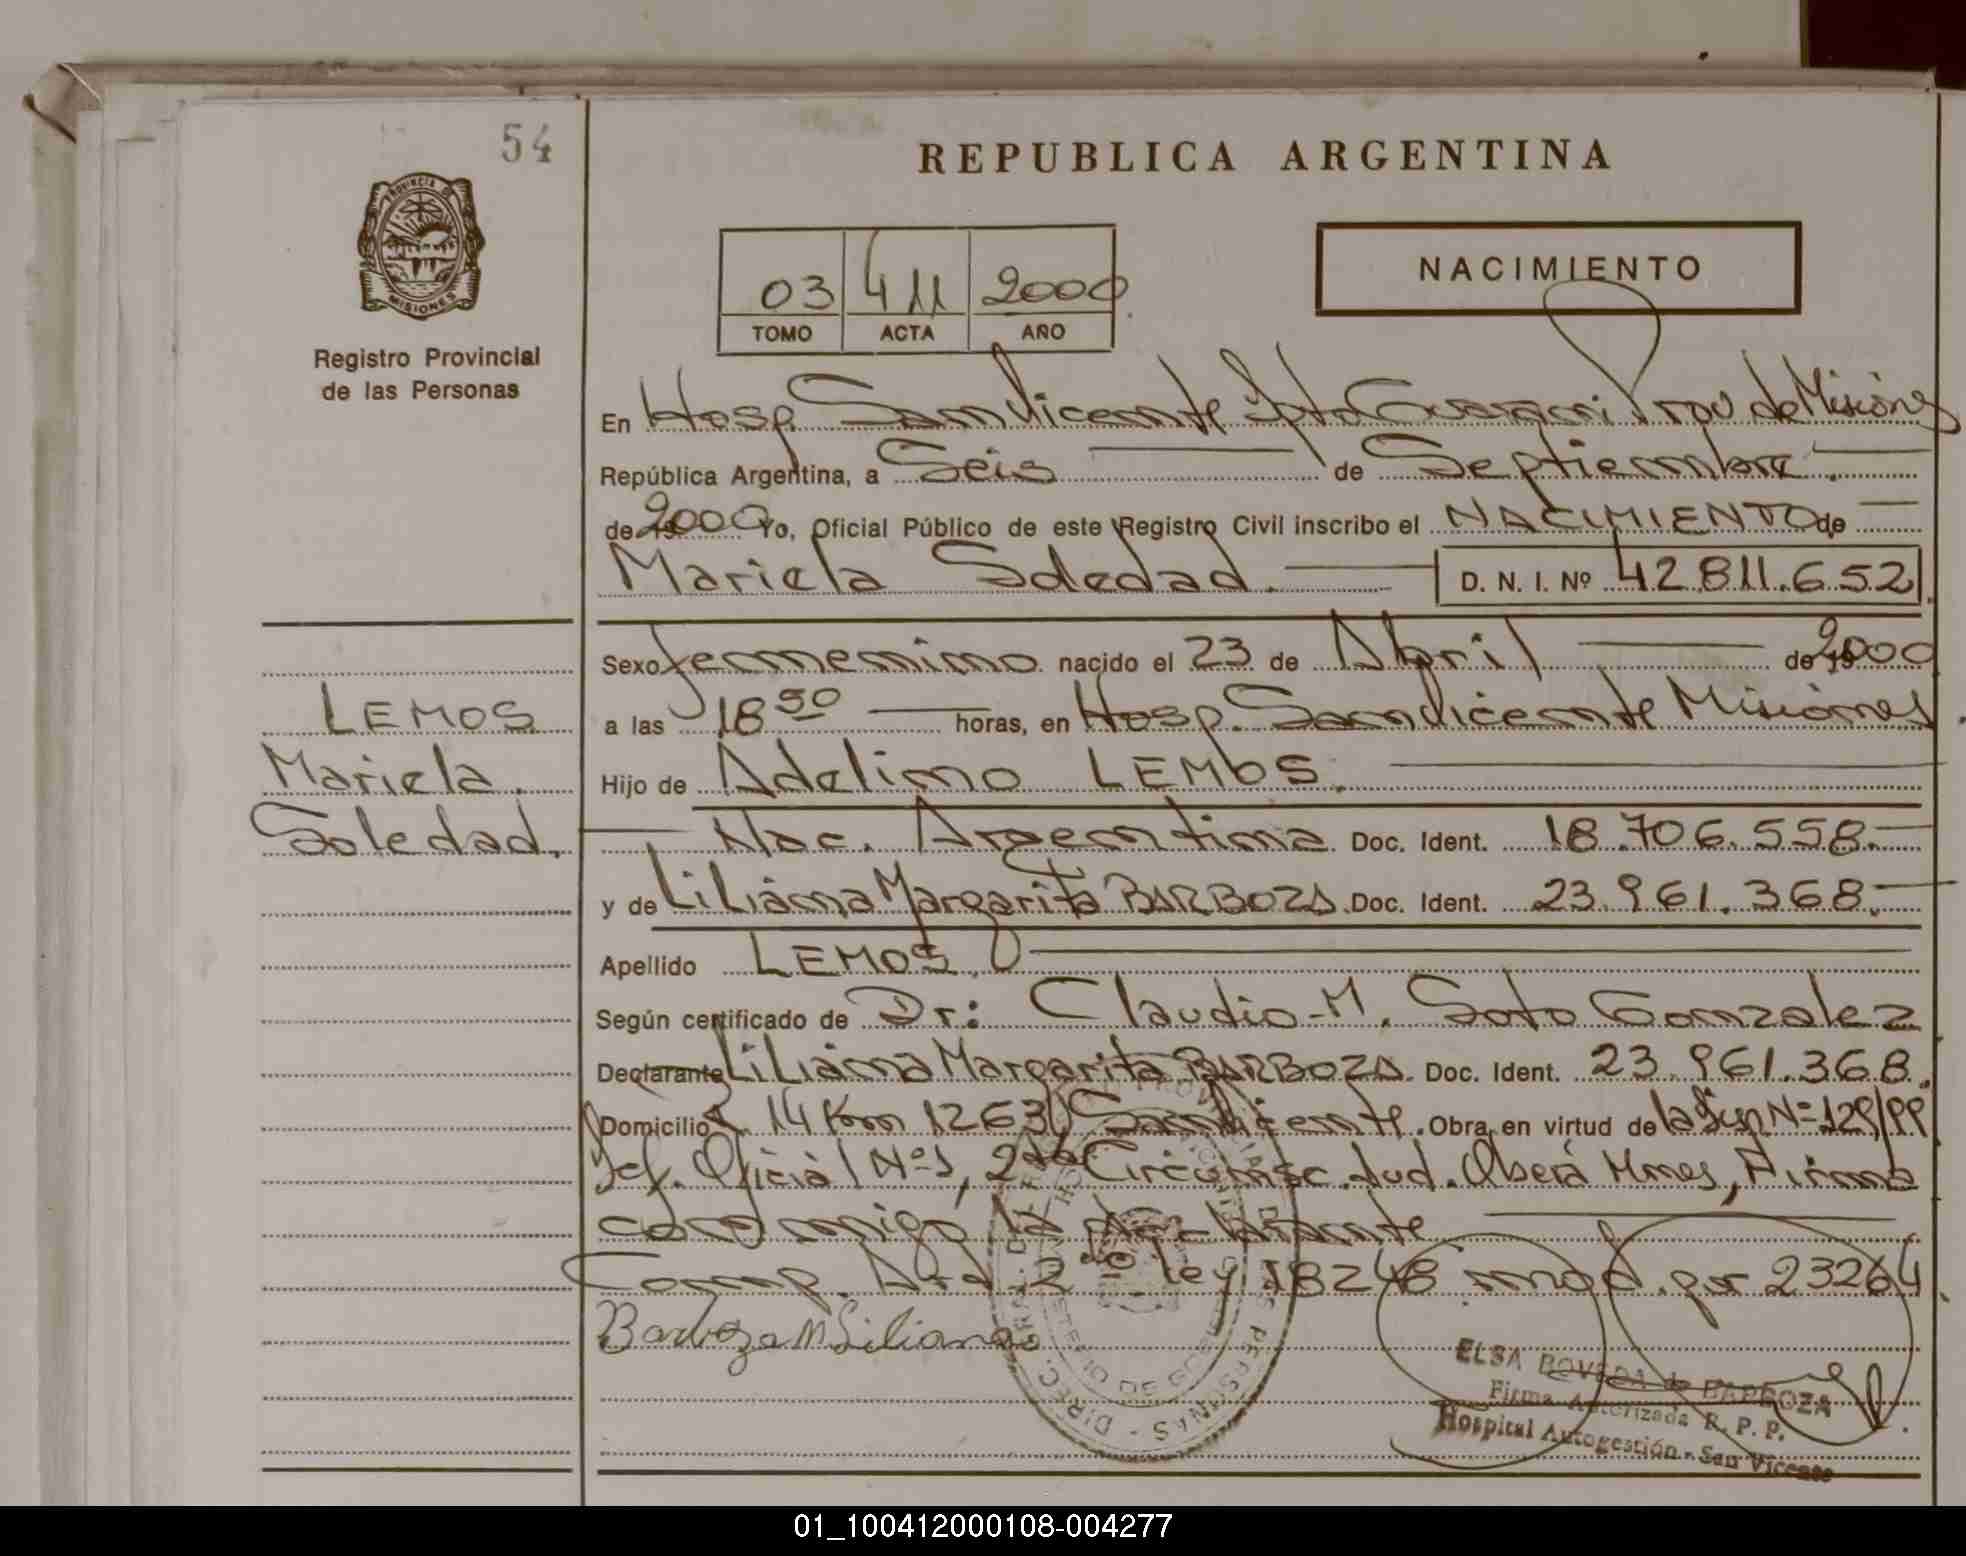 54
PROVINCIA DE
MISIONES
Registro Provincial
de las Personas
LEMOS
Mariela
Soledad.
REPUBLICA ARGENTINA
03 411 2000
TOMO ACTA AÑO
NACIMIENTO
En Hosp. San Vicente Dpto Guarani Prov de Misiones
República Argentina, a Seis de Septiembre
de 2000 Yo, Oficial Público de este Registro Civil inscribo el NACIMIENTO de
Mariela Soledad. D. N. I. Nº 42.811.652
Sexo femenino nacido el 23 de Abril de 2000
a las 18 50 horas, en Hosp. San Vicente Misiones
Hijo de Adelino LEMOS.
Nac. Argentina Doc. Ident. 18.706.558.
y de Liliana Margarita BARBOZA Doc. Ident. 23.961.368.
Apellido LEMOS
Según certificado de Dr: Claudio M. Soto Gonzalez
Declarante Liliana Margarita BARBOZA Doc. Ident. 23.961.368.
Domicilio 14 Km 1263 San Vicente. Obra en virtud de la Nº 129/99
Def. Oficial Nº 1, 2da Circunsc. Jud. Oberá Mnes, Firma
conmigo la declarante
Comp. Art 2do ley 18248 mod. por 23264
Barboza M Liliana
ELSA BOVEDA de BARBOZA
Firma Autorizada R. P. P.
Hospital Autogestión - San Vicente
01_100412000108-004277